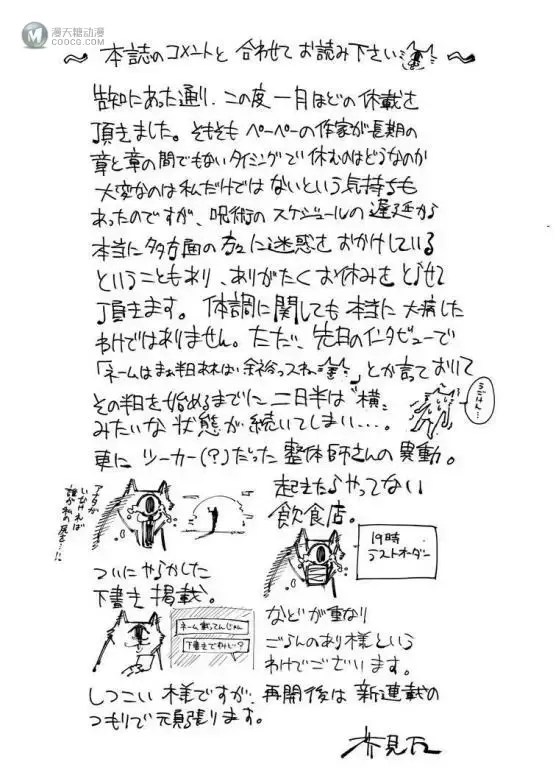 漫天糖动漫
COOCG.COM
～本誌のコメントと合わせてお読み下さい～
告知にあった通り、この度一月ほどの休載を
頂きました。そもそもペーペーの作家が長期の
章と章の間でもないタイミングで休むのはどうなのか
大変なのは私だけではないという気持ちも
あったのですが、呪術のスケジュールの遅延から
本当に多方面の方々に迷惑をおかけしている
ということもあり、ありがたくお休みをとらせて
頂きます。体調に関しても本当に大病した
わけではありません。ただ、先日のインタビューで
「ネームはまぁ半日あれば余裕っスね」とか言っておいて
その半日を始めるまでに二日半は"横"
みたいな状態が続いてしまい…。
うごけん…
更にシーカー(?)だった整体師さんの異動。
アナタが
いなければ
誰が私の尻を…!!
起きたらやってない
飲食店。
19時
ラストオーダー
ついにやらかした
下書き掲載。
ネーム載ってんじゃん
下書きでわ?
などが重なり
ごらんのあり様という
わけでございます。
しつこい様ですが、再開後は新連載の
つもりで頑張ります。
芥見下々